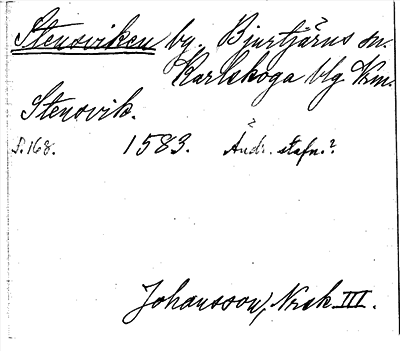 Stensviken by, Bjurtjärns sn.
Karlskoga blg Vrm.
Stensvik.
s. 168. 1583. Ändr. stafn.?
Johansson, Nrck III.